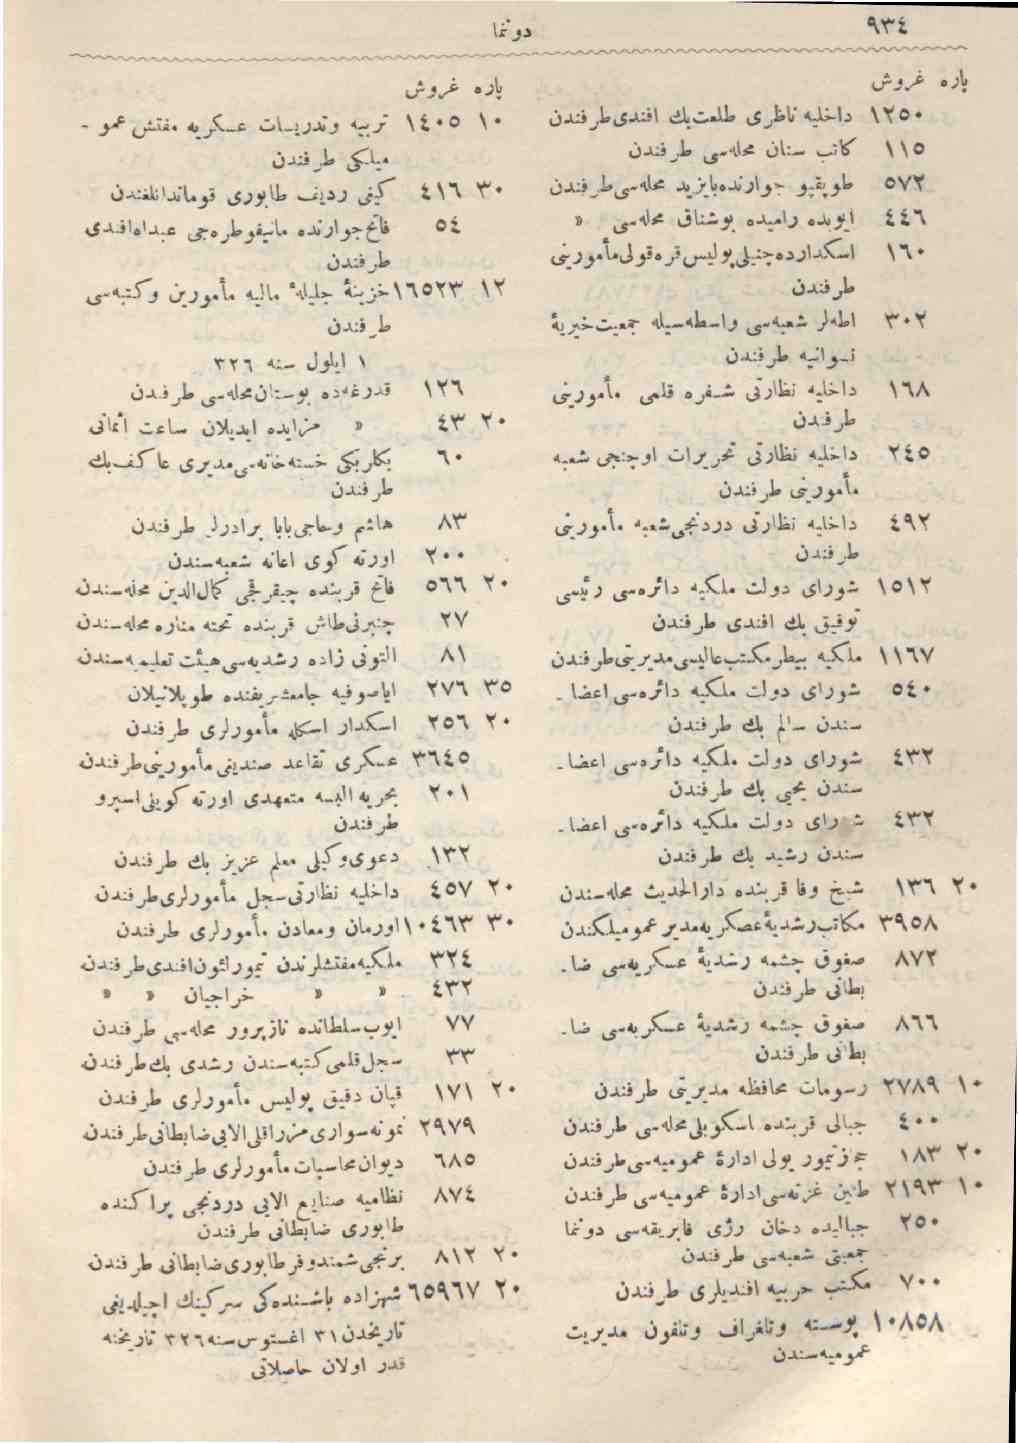 ٩٣٤
دونما
پاره غروش
١٢٥٠ داخليه ناظری طلعت‌بك افندی طرفندن
١١٥ كاتب سنان محله‌سی طرفندن
٥٧٢ طوپقپو جوارنده بايزيد محله‌سی طرفندن
٤٤٦ ايوبده راميده بوشناق محله‌سی »
١٦٠ اسكدارده چنيلی پوليس قره‌قولی مأمورينی
طرفندن
٣٠٢ اطه‌لر شعبه‌سی واسطه‌سيله جمعيت خيريۀ
نسوانيه طرفندن
١٦٨ داخليه نظارتی شفره قلمی مأمورينی
طرفندن
٢٤٥ داخليه نظارتی تحريرات اوچنجی شعبه
مأمورينی طرفندن
٤٩٢ داخليه نظارتی دردنجی شعبه مأمورينی
طرفندن
١٥١٢ شورای دولت ملكيه دائره‌سی رئيسی
توفيق بك افندی طرفندن
١١٦٧ ملكيه بيطر مكتب عاليسی مديريتی طرفندن
٥٤٠ شورای دولت ملكيه دائره‌سی اعضا ـ
سندن سالم بك طرفندن
٤٣٢ شورای دولت ملكيه دائره‌سی اعضا ـ
سندن يحيی بك طرفندن
٤٣٢ شورای دولت ملكيه دائره‌سی اعضا ـ
سندن رشيد بك طرفندن
٢٠ ١٣٦ شيخ وفا قربنده دارالحديث محله‌سندن
٣٩٥٨ مكاتب رشديۀ عسكريه مدير عموميلكندن
٨٧٢ صغوق چشمه رشديۀ عسكريه‌سی ضا ـ
بطانی طرفندن
٨٦٦ صغوق چشمه رشديۀ عسكريه‌سی ضا ـ
بطانی طرفندن
١٠ ٢٧٨٩ رسومات محافظه مديريتی طرفندن
٤٠٠ جبالی قربنده اسكوبلی محله‌سی طرفندن
٢٠ ١٨٣ حجاز تيمور يولی ادارۀ عموميه‌سی طرفندن
١٠ ٢١٩٣ طنين غزته‌سی ادارۀ عموميه‌سی طرفندن
٢٥٠ جباليده دخان رژی فابريقه‌سی دونما
جمعيتی شعبه‌سی طرفندن
٧٠٠ مكتب حربيه افنديلری طرفندن
١٠٨٥٨ پوسته وتلغراف وتلفون مديريت
عموميه‌سندن
پاره غروش
١٠ ١٤٠٥ تربيه وتدريسات عسكريه مفتش عمو ـ
ميلكی طرفندن
٣٠ ٤١٦ كيفی رديف طابوری قوماندانلغندن
٥٤ فاتح جوارنده مانيفطوره‌جی عبدالله افندی
طرفندن
١٢ ١٦٥٢٣ خزينۀ جليلۀ ماليه مأمورين وكتبه‌سی
طرفندن
١ ايلول سنه ٣٢٦
١٢٦ قدرغه‌ده بوستان محله‌سی طرفندن
٢٠ ٤٣ » مزايده ايديلان ساعت اثمانی
٦٠ بكلربكی خسته‌خانه‌سی مديری عاكف بك
طرفندن
٨٣ هاشم وحاجی بابا برادرلر طرفندن
٢٠٠ اورته كوی اعانه شعبه‌سندن
٢٠ ٥٦٦ فاتح قربنده چيقرقجی كمال‌الدين محله‌سندن
٢٧ چنبرلی طاش قربنده تخته مناره محله‌سندن
٨١ التونی زاده رشديه‌سی هيئت تعليميه‌سندن
٣٥ ٢٧٦ اياصوفيه جامعشريفنده طوپلانيلان
٢٠ ٢٥٦ اسكدار اسكله مأمورلری طرفندن
٣٦٤٥ عسكری تقاعد صنديغی مأمورينی طرفندن
٢٠١ بحريه البسه متعهدی اورته كويلی اسپرو
طرفندن
١٣٢ دعوی وكيلی معلم عزيز بك طرفندن
٢٠ ٤٥٧ داخليه نظارتی سجل مأمورلری طرفندن
٣٠ ١٠٤٦٣ اورمان ومعادن مأمورلری طرفندن
٣٢٤ ملكيه مفتشلرندن تيمورلئون افندی طرفندن
٤٣٢ » » خراجيان » »
٧٧ ايوب سلطانده نازپرور محله‌سی طرفندن
٣٣ سجل قلمی كتبه‌سندن رشدی بك طرفندن
٢٠ ١٧١ قپان دقيق پوليس مأمورلری طرفندن
٢٩٧٩ نمونه سواری مزراقلی الايی ضابطانی طرفندن
٦٨٥ ديوان محاسبات مأمورلری طرفندن
٨٧٤ نظاميه صنايع الايی دردنجی پراكنده
طابوری ضابطانی طرفندن
٢٠ ٨١٢ برنجی شمندوفر طابوری ضابطانی طرفندن
٢٠ ٦٥٩٦٧ شهزاده باشنده‌كی سركينك اچيلديغی
تاريخدن ٣١ اغستوس سنه ٣٢٦ تاريخنه
قدر اولان حاصلاتی